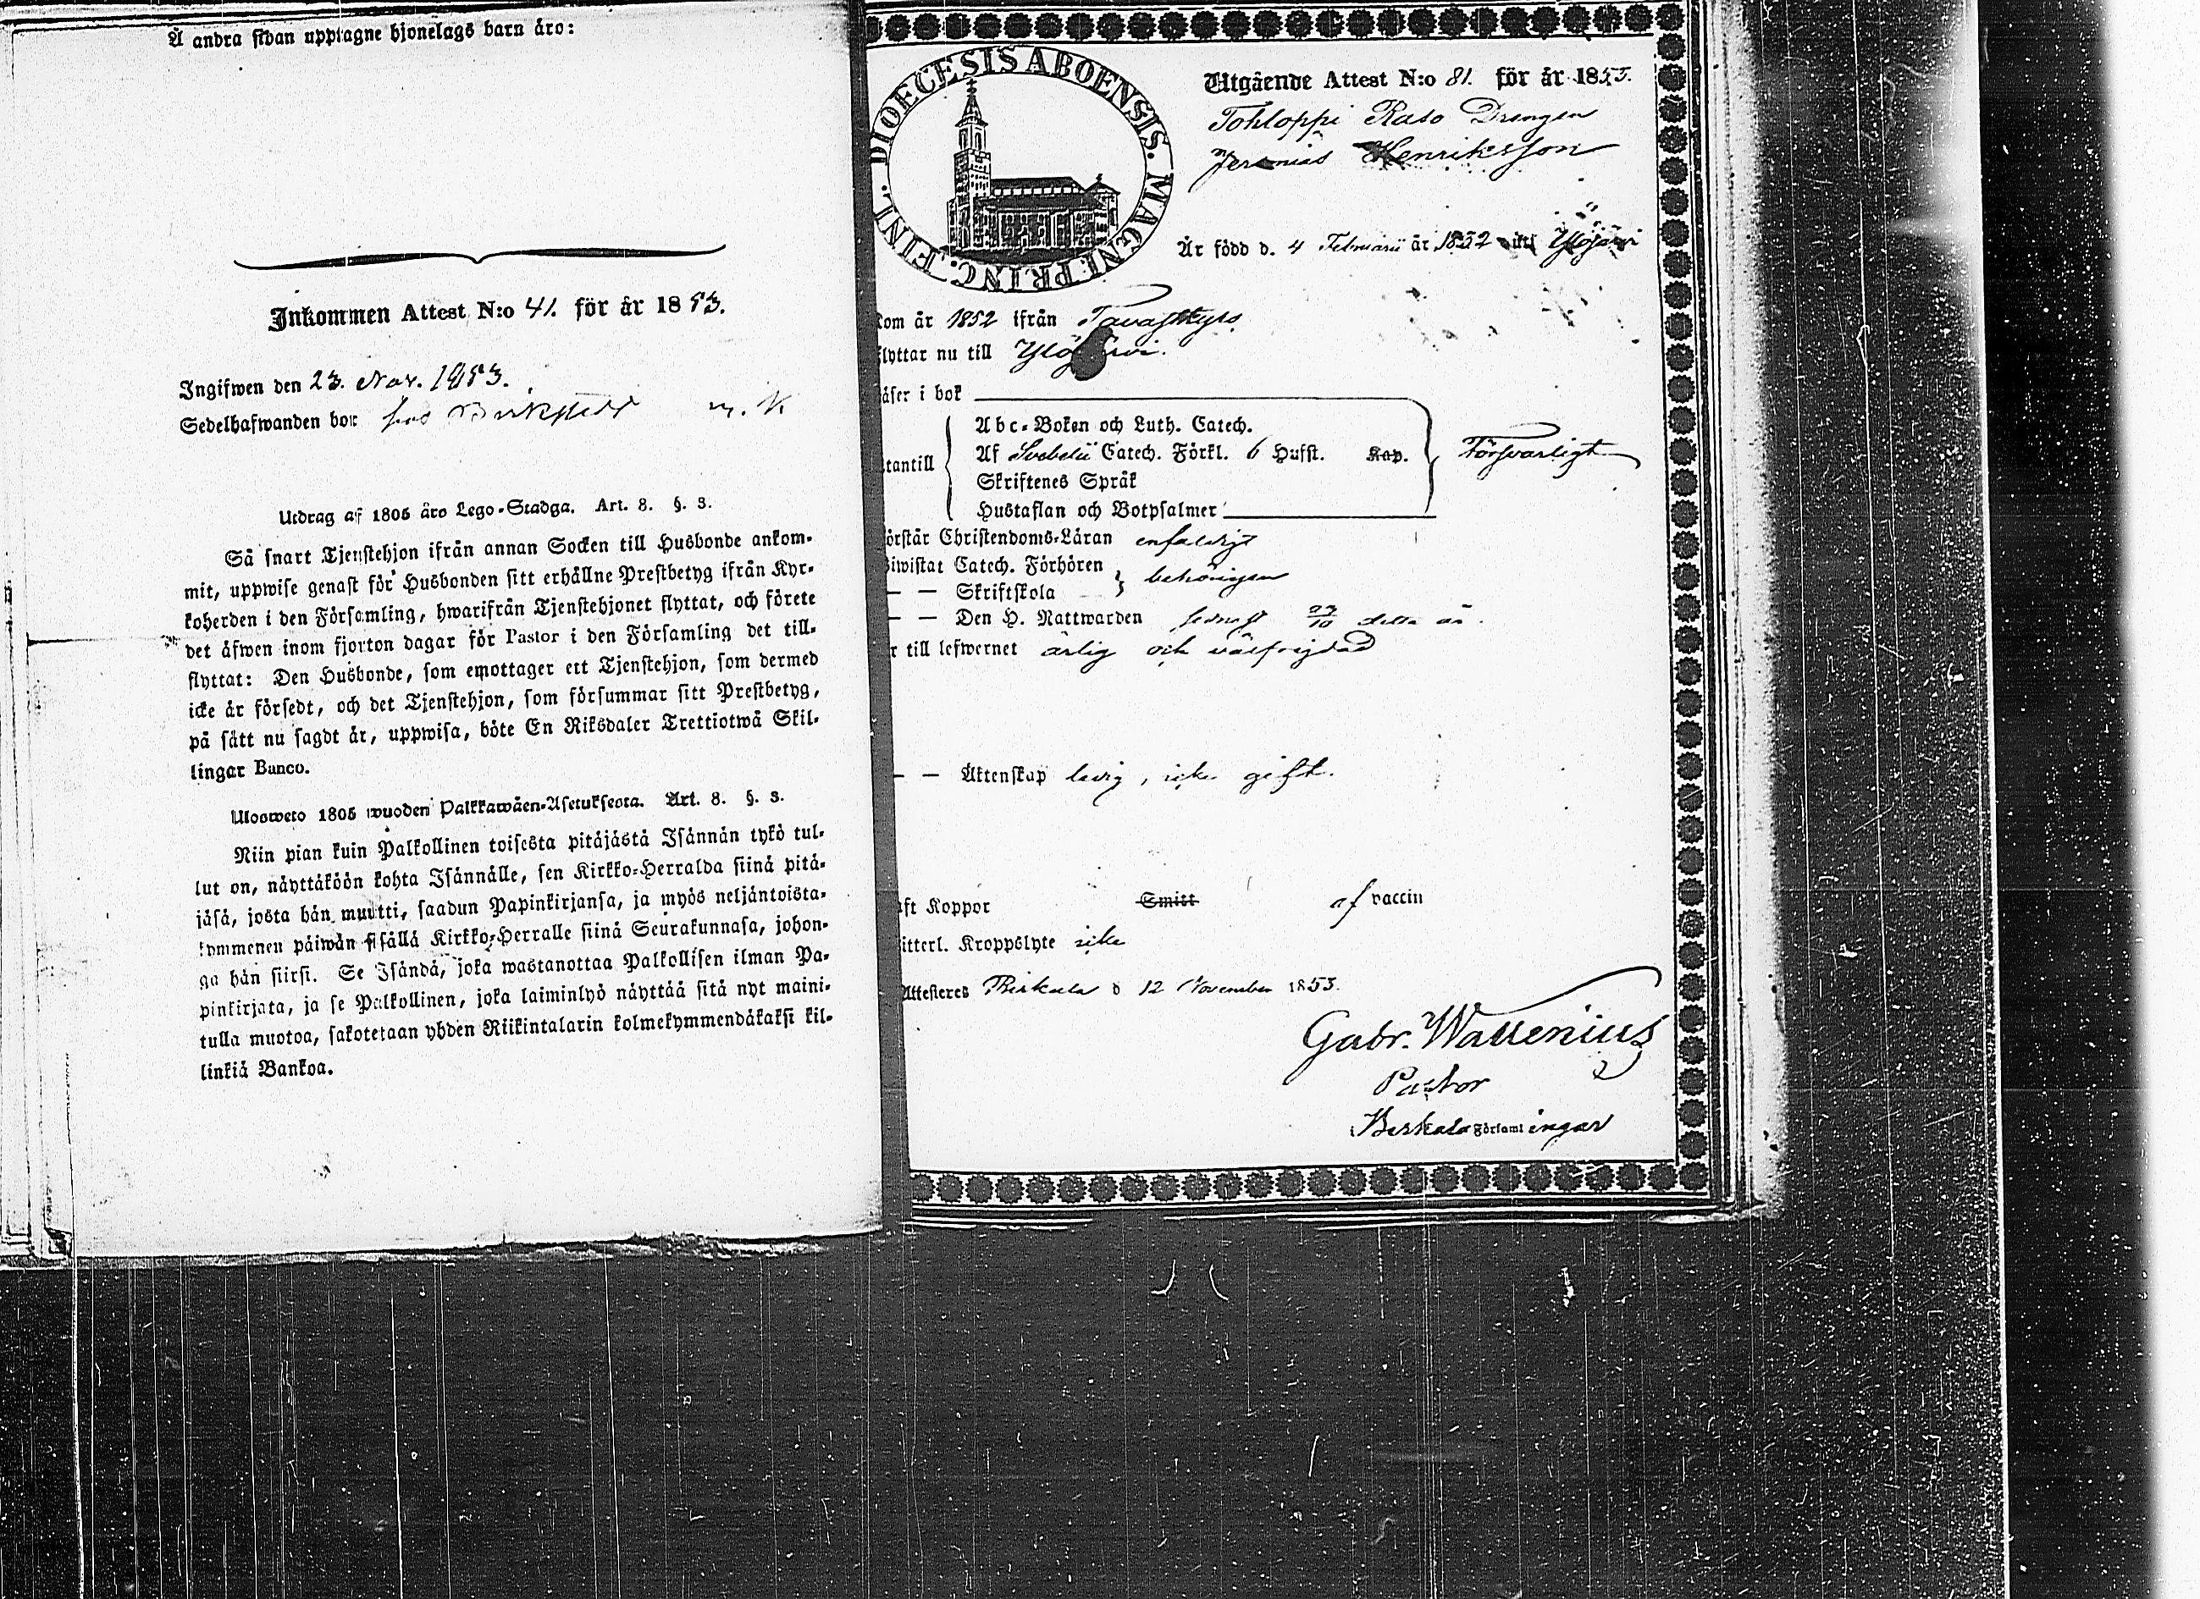 Å andra sidan upptagne hjonelags barn äro:
Inkommen Attest N:o 41. för år 1853.
Ingifwen den 23. Nov. 1853.
Sedelhafwanden bor hos
Utdrag af 1805 års Lego-Stadga. Art. 8. §. 3.
Så snart Tjenstehjon ifrån annan Socken till Husbonde ankom-
mit, uppwise genast för Husbonden sitt erhållne Prestbetyg ifrån Kyr-
koherden i den Församling, hwarifrån Tjenstehjonet flyttat, och förete
det äfwen inom fjorton dagar för Pastor i den Församling det till-
flyttat: Den Husbonde, som emottager ett Tjenstehjon, som dermed
icke är försedt, och det Tjenstehjon, som försummar sitt Prestbetyg,
på sätt nu sagdt är, uppwisa, böte En Riksdaler Trettiotwå Skil-
lingar Banco.
Ulosweto 1805 wuoden Palkkawäen-Asetuksesta. Art. 8. §. 3.
Niin pian kuin Palkollinen toisesta pitäjästä Isännän tykö tul-
lut on, näyttäköön kohta Isännälle, sen Kirkko-Herralda siinä pitä-
jäsä, josta hän muutti, saadun Papinkirjansa, ja myös neljäntoista-
kymmenen päiwän sisällä Kirkko-Herralle siinä Seurakunnasa, johon-
ga hän siirsi. Se Isändä, joka wastanottaa Palkollisen ilman Pa-
pinkirjata, ja se Palkollinen, joka laiminlyö näyttää sitä nyt maini-
tulla muotoa, sakotetaan yhden Riikintalarin kolmekymmendäkaksi kil-
linkiä Bankoa.
DIOECESIS ABOENSIS. MAGNI PRINC. FINL.
Utgående Attest N:o 81. för år 1853.
Tohloppi Raso Drengen
Jeremias Henriksson
Är född d. 4 Februarii år 1832 uti Ylöjärvi
kom år 1852 ifrån Tavastkyro
flyttar nu till Ylöjärvi.
läser i bok
Abc-Boken och Luth. Catech.
utantill Af Svebelii Catech. Förkl. 6 Hufst. Kap. Försvarligt
Skriftenes Språk
Hustaflan och Botpsalmer
förstår Christendoms-Läran enfaldigt
biwistat Catech. Förhören behörigen
— — Skriftskola
— — Den H. Nattwarden sednast 23/10 detta år.
r till lefwernet ärlig och välfrejdad
— — Äktenskap ledig, icke gift.
aft Koppor Smitt af vaccin
itterl. Kroppslyte icke
Attesteres Birkala d 12 November 1853.
Gabr. Wallenius
Pastor
i Birkala Församlingar